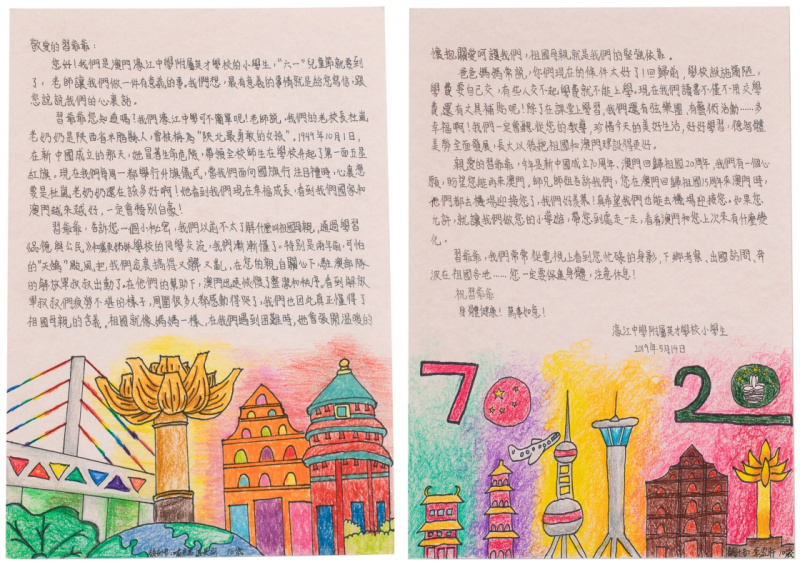 敬愛的習爺爺：
您好！我們是澳門濠江中學附屬英才學校的小學生，"六一"兒童節就要到
了，老師讓我們做一件有意義的事。我們想，最有意義的事情就是給您寫信，跟
您說說我們的心裏話。
習爺爺您知道嗎？我們濠江中學可不簡單呢！老師說，我們的老校長杜嵐
老奶奶是陝西省米脂縣人，曾被稱為"陝北最勇敢的女孩"。1949年10月1日，
在新中國成立的那天，她冒著生命危險，帶領全校師生在學校升起了第一面五星
紅旗。現在我們每周一都舉行升旗儀式，當我們面向國旗行注目禮時，心裏想
要是杜嵐老奶奶還在該多好啊！她看到我們現在幸福成長，看到我們國家和
澳門越來越好，一定會特別自豪！
習爺爺，告訴您一個小秘密，我們以前不太了解什麼叫祖國母親，通過學習
《品德與公民》和姊妹學校的同學交流，我們漸漸懂了。特別是兩年前，可怕
的"天鴿"颱風，把我們家裏搞得又髒又亂，在您的親自關心下，駐澳部隊
的解放軍叔叔出動了。在他們的幫助下，澳門迅速恢復了整潔和秩序。看到解放
軍叔叔們疲勞不堪的樣子，周圍很多人都感動得哭了，我們也因此真正懂得了
祖國母親的含義。祖國就像媽媽一樣，在我們遇到困難時，她會張開溫暖的
懷抱，關愛呵護我們，祖國母親就是我們的堅強依靠。
爸爸媽媽常說，你們現在的條件太好了！回歸前，學校設施簡陋，
學費要自己交，有些人交不起學費就不能上學。現在我們讀書不僅不用交學
費，還有文具補貼呢！除了在課堂上學習，我們還有弦樂團，有藝術活動……多
幸福啊！我們一定會聽從您的教導，珍惜今天的美好生活，好好學習，德智體
美勞全面發展，長大以後把祖國和澳門建設得更好。
親愛的習爺爺，今年是新中國成立70周年，澳門回歸祖國20周年，我們有一個心
願，盼望您能再來澳門。師兄師姐告訴我們，您在澳門回歸祖國15周年來澳門時，
他們都去機場迎接您了，我們好羨慕！真希望我們也能去機場迎接您。如果您
允許，就讓我們做您的小導遊，帶您到處走一走，看看澳門和您上次來有什麼變
化。
習爺爺，我們常常從電視上看到您忙碌的身影，下鄉考察、出國訪問、奔
波在祖國各地……您一定要保重身體，注意休息！
祝習爺爺
身體健康！萬事如意！
濠江中學附屬英才學校小學生
2019年5月14日
70
20